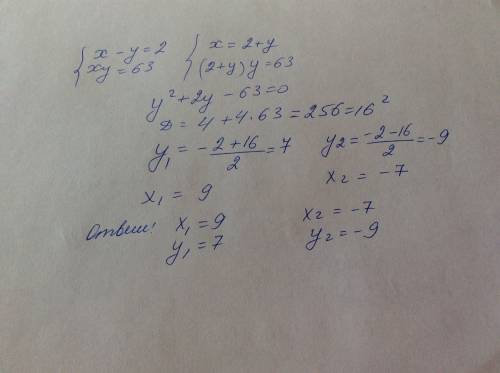 { x - y = 2 { x = 2 + y
xy = 63 (2 + y) y = 63
y² + 2y - 63 = 0
D = 4 + 4 · 63 = 256 = 16²
y₁ = -2+16/2 = 7 y₂ = -2-16/2 = -9
x₁ = 9 x₂ = -7
Ответ: x₁ = 9 x₂ = -7
y₁ = 7 y₂ = -9